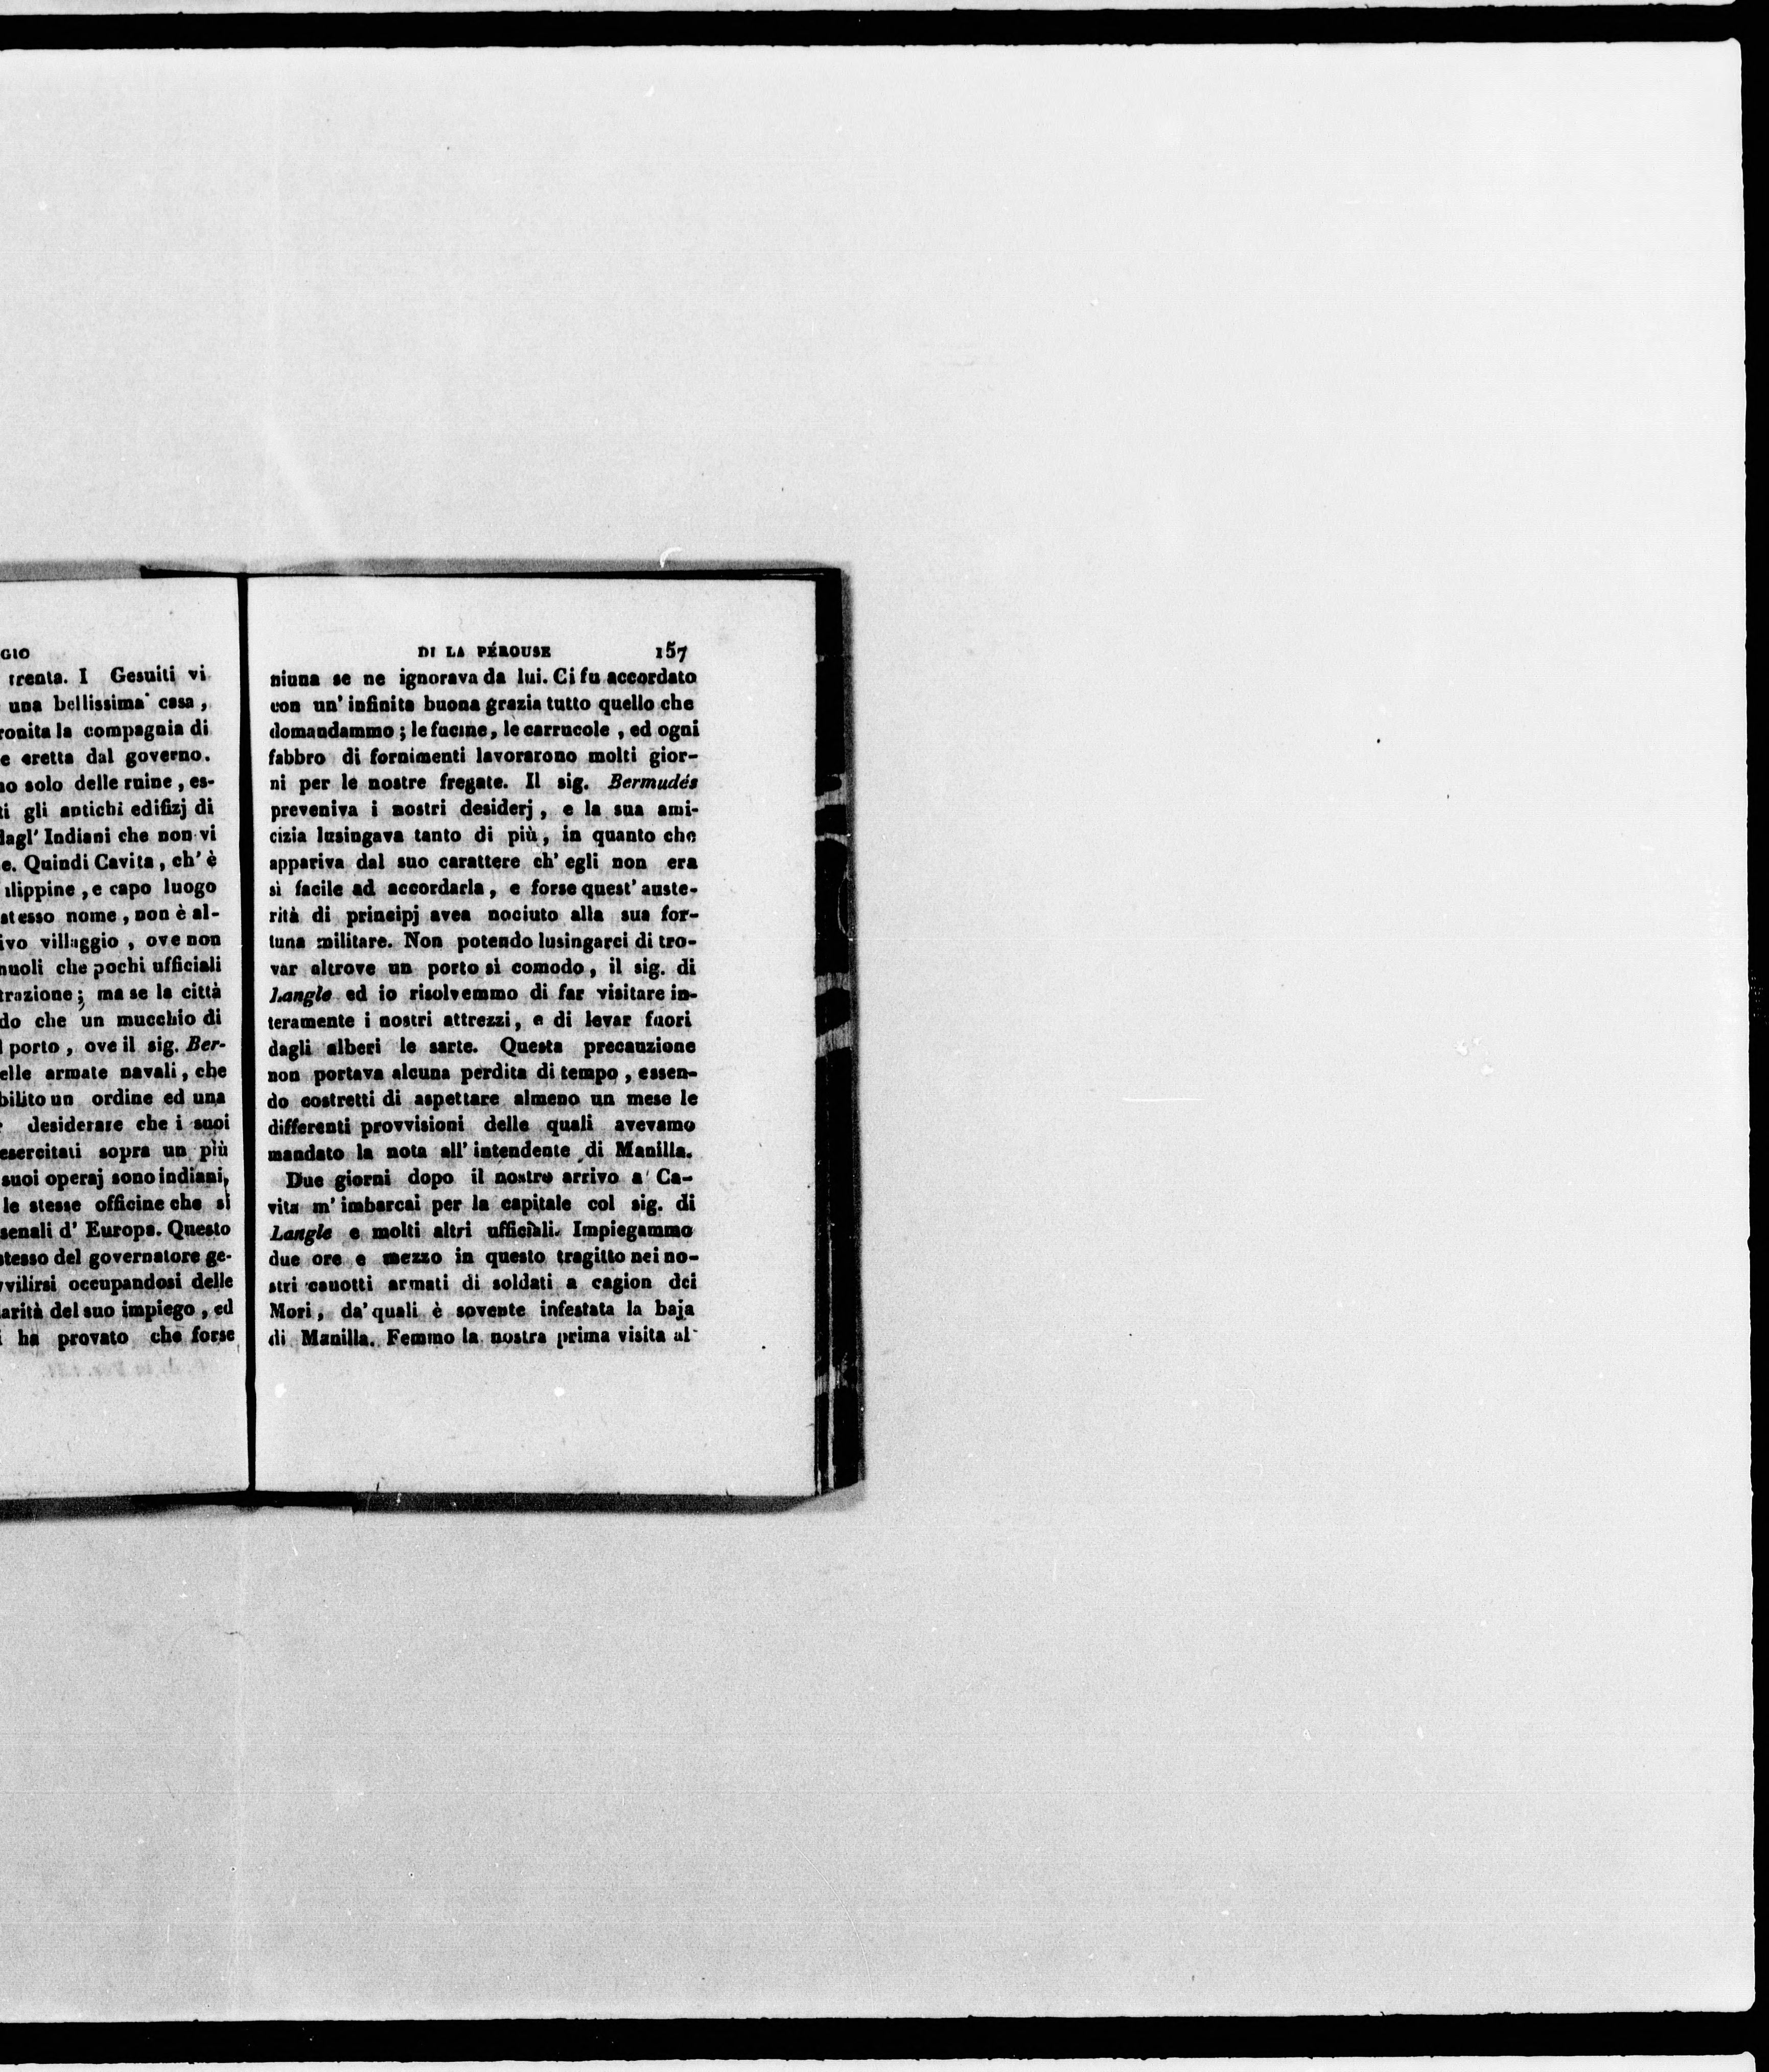 GIO
trenta. I Gesuiti vi
una bellissima casa,
ronita la compagnia di
e eretta dal governo.
no solo delle ruine, es-
ti gli antichi edifizj di
dagl' Indiani che non vi
e. Quindi Cavita, ch' è
ilippine, e capo luogo
stesso nome, non è al-
ivo villaggio, ove non
nuoli che pochi ufficiali
trazione; ma se la città
do che un mucchio di
porto, ove il sig. Ber-
elle armate navali, che
bilito un ordine ed una
desiderare che i suoi
esercitati sopra un più
suoi operaj sono indiani,
le stesse officine che si
senali d' Europa. Questo
stesso del governatore ge-
vvilirsi occupandosi delle
iarità del suo impiego, ed
i ha provato che forse
DI LA PÉROUSE 157
niuna se ne ignorava da lui. Ci fu accordato
con un' infinita buona grazia tutto quello che
domandammo; le fucine, le carrucole, ed ogni
fabbro di fornimenti lavorarono molti gior-
ni per le nostre fregate. Il sig. Bermudés
preveniva i nostri desiderj, e la sua ami-
cizia lusingava tanto di più, in quanto che
appariva dal suo carattere ch' egli non era
sì facile ad accordarla, e forse quest' auste-
rità di principj avea nociuto alla sua for-
tuna militare. Non potendo lusingarci di tro-
var altrove un porto sì comodo, il sig. di
Langle ed io risolvemmo di far visitare in-
teramente i nostri attrezzi, e di levar fuori
dagli alberi le sarte. Questa precauzione
non portava alcuna perdita di tempo, essen-
do costretti di aspettare almeno un mese le
differenti provvisioni delle quali avevamo
mandato la nota all' intendente di Manilla.
Due giorni dopo il nostro arrivo a Ca-
vita m' imbarcai per la capitale col sig. di
Langle e molti altri ufficiali. Impiegammo
due ore e mezzo in questo tragitto nei no-
stri canotti armati di soldati a cagion dei
Mori, da' quali è sovente infestata la baja
di Manilla. Femmo la nostra prima visita al-